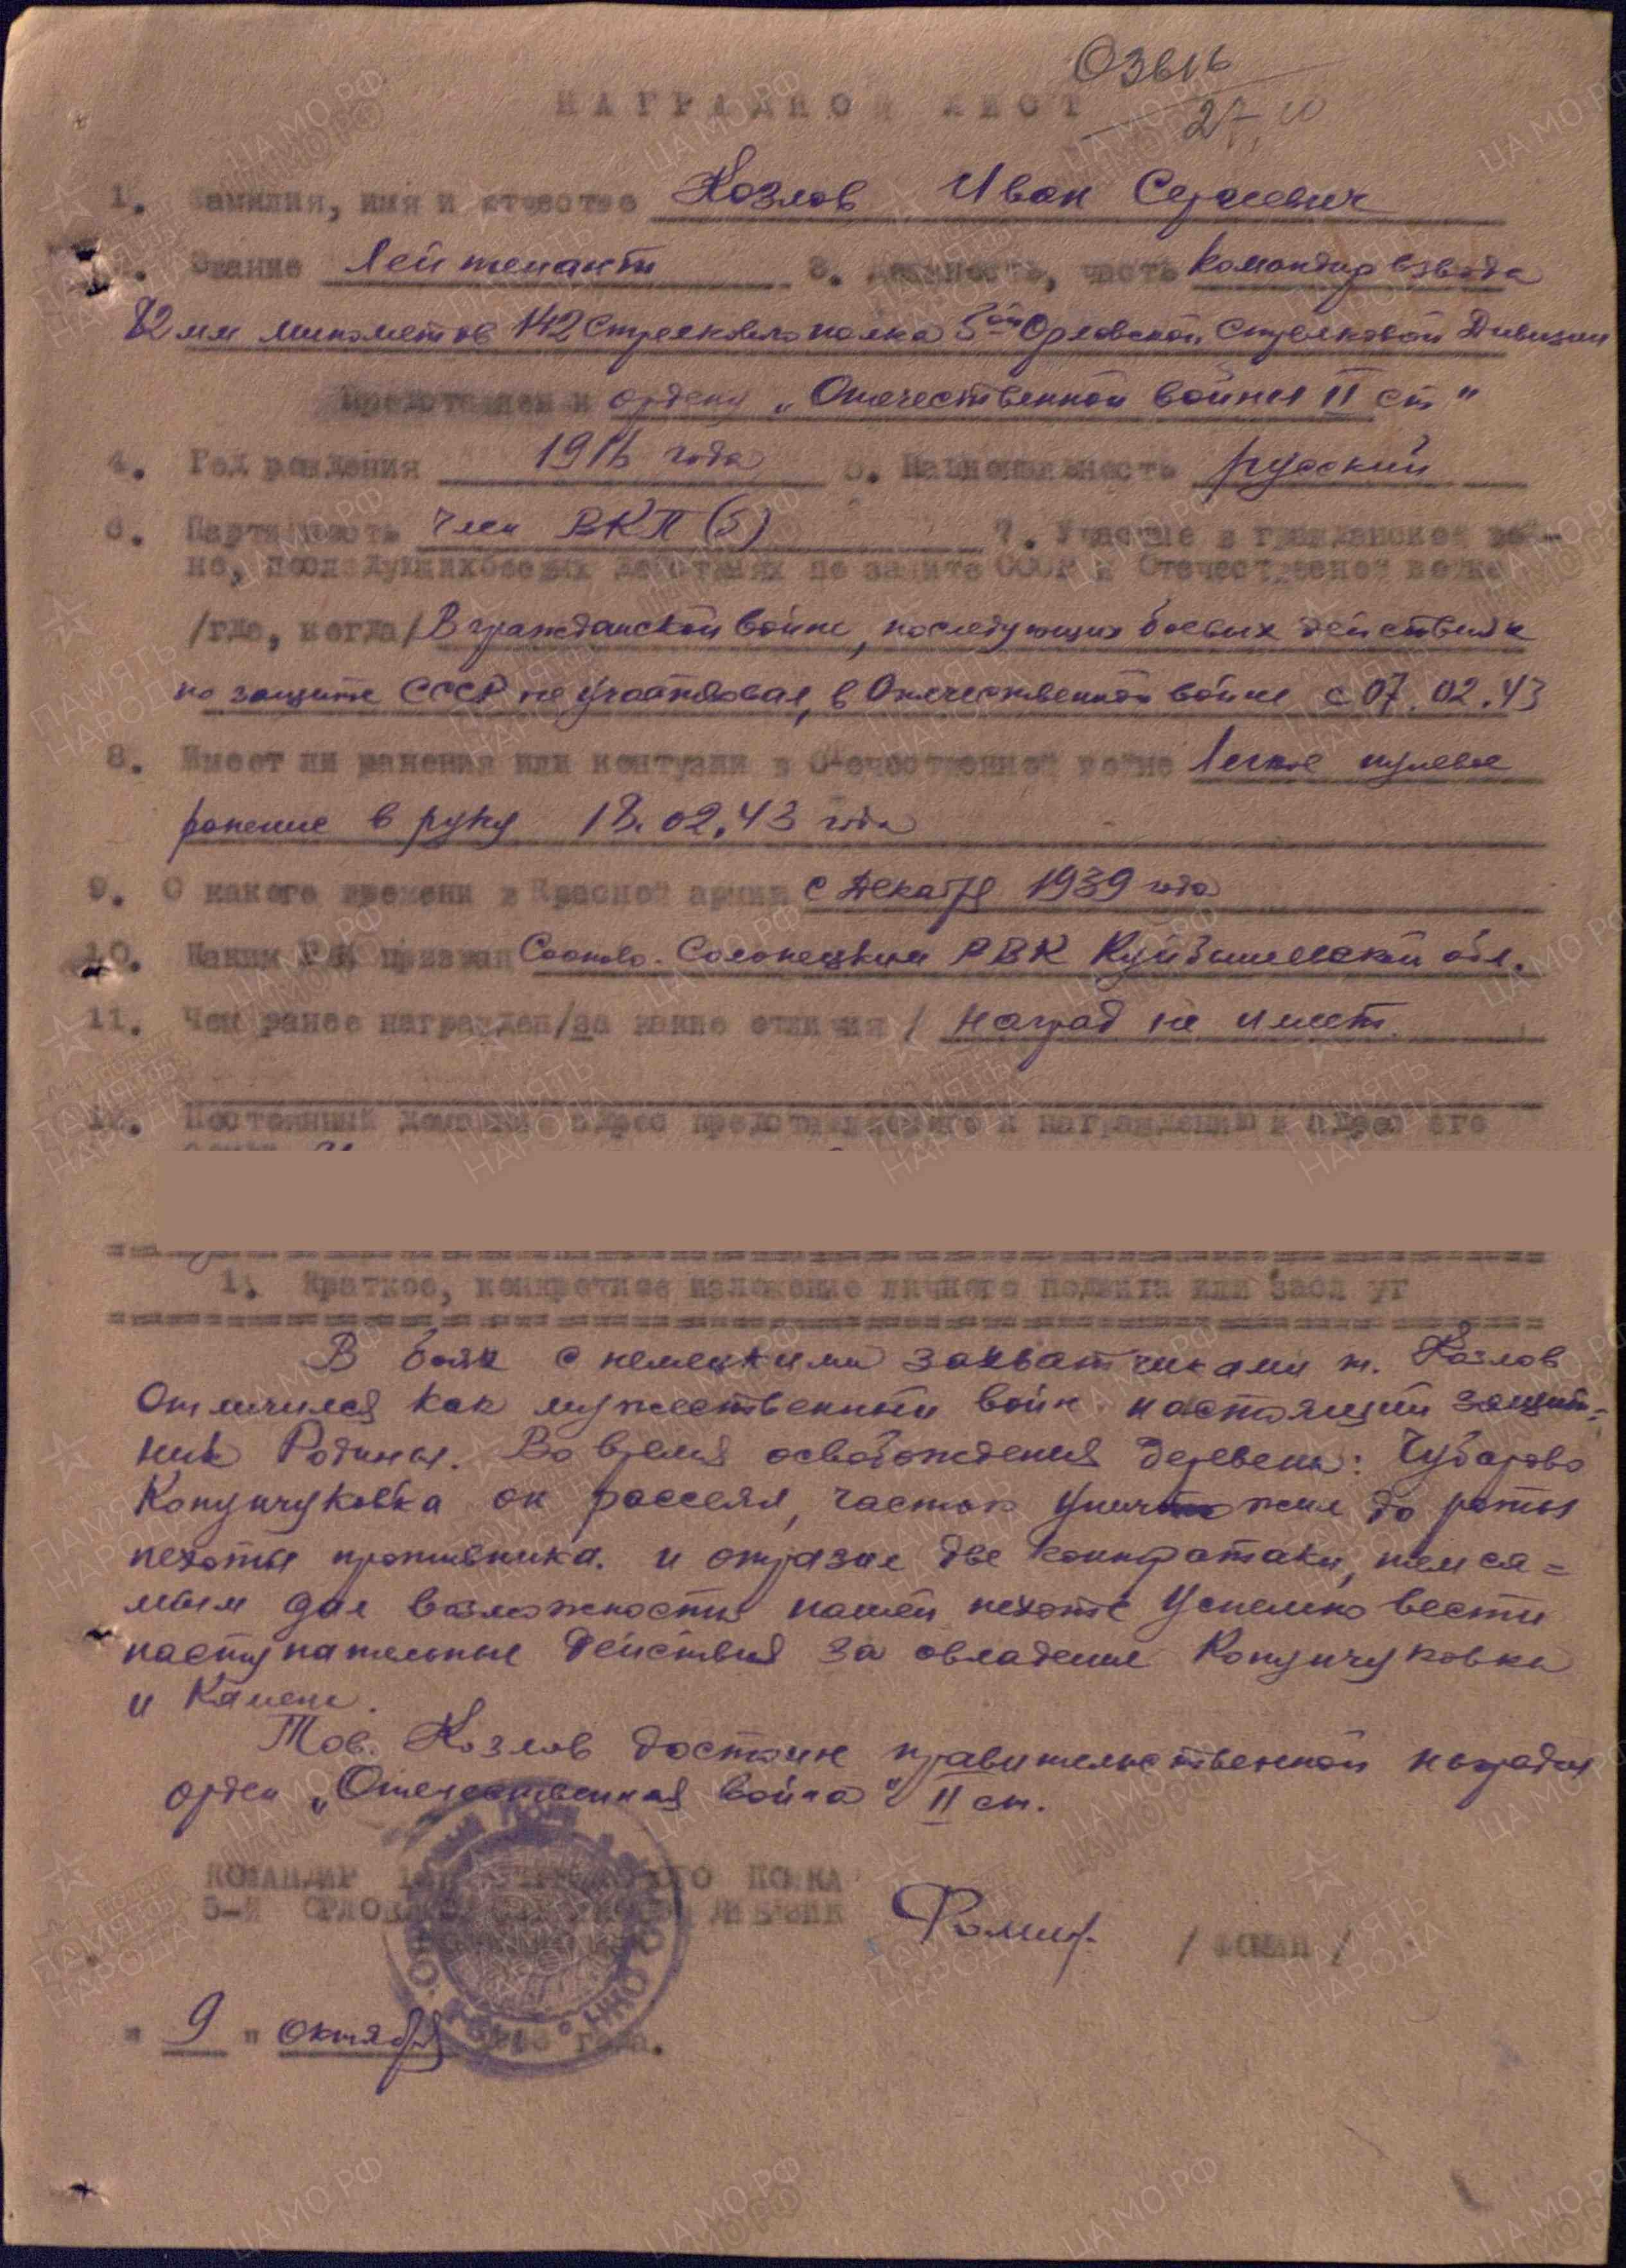 НАГРАДНОЙ ЛИСТ
27.10
1. Фамилия, имя и отчество Козлов Иван Сергеевич
2. Звание Лейтенант 3. Должность, часть Командир взвода
82 мм минометов 142 Стрелкового полка 5ой Орловской Стрелковой Дивизии
Представлен к ордену „Отечественной войны II ст"
4. Год рождения года 5. Национальность русский
6. Партийность член ВКП(б) 7. Участие в гражданской вой-
не, последующих боевых действиях по защите СССР и Отечественной войне
/где, когда/ В гражданской войне, последующих боевых действиях
по защите СССР не участвовал, в Отечественной войне с 07.02.43
8. Имеет ли ранения или контузии в Отечественной войне Легкое пулевое
ранение в руку 18.02.43 года
9. С какого времени в Красной армии с Декабря 1939 года
10. Каким РВК призван Солонецким РВК Куйбышевской обл.
11. Чем ранее награжден/за какие отличия/ наград не имеет.
12. Постоянный домашний адрес представляемого к награждению и адрес его
1. Краткое, конкретное изложение личного подвига или заслуг
В боях с немецкими захватчиками т. Козлов
Отличился как мужественный воин настоящий защит=
ник Родины. Во время освобождения деревень: Чубарово
он рассеял, частью уничтожил до роты
пехоты противника. и отразил две контратаки, тем са=
мым дал возможность нашей пехоте Успешно вести
наступательные действия за овладение
и
Тов. Козлов достоин правительственной награды
орден „Отечественная война" II ст.
КОМАНДИР 142 СТРЕЛКОВОГО ПОЛКА
5-Й ОРЛОВСКОЙ СТРЕЛКОВОЙ ДИВИЗИИ
/ФОМИН/
"9" октября 1943 года.
ЦА МО РФ
ПАМЯТЬ НАРОДА